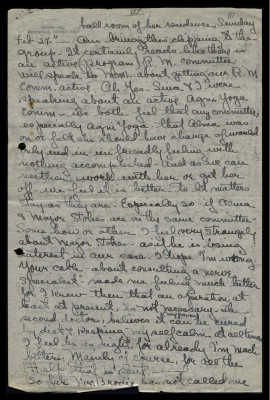 ball room of her residence, Sunday
Feb. 27. Am bringing this clipping to the
group. It certainly reads like there is
an active program! R. M. committee
will speak to Wm. about getting our R. M.
Comm. active. Oh yes. and I were
speaking about an active Agni Yoga
Comm. We both feel that any committee,
especially Agni Yoga that was
on or left she should have change of
only end in unfriendly feeling with
nothing accomplished and as we can
neither work with her or get her
off we feel it is better to let matters
stay as they are. Especially so if
& Major Stokes are on the same committee.
Some how or other I feel very strongly
about Major Stokes as if he is losing
interest in our case. I hope I'm wrong.
Your cable about consulting a nerve
specialist made me feeling much better
for I knew then that an operation, at
least at present, is not necessary. The
second doctor believes it can be cured
by diet & keeping myself calm at all times
I feel he is right, for already I'm much
better. Thanks, of course, for all the
Help that is sent.
So far Mrs Brodie has not called me